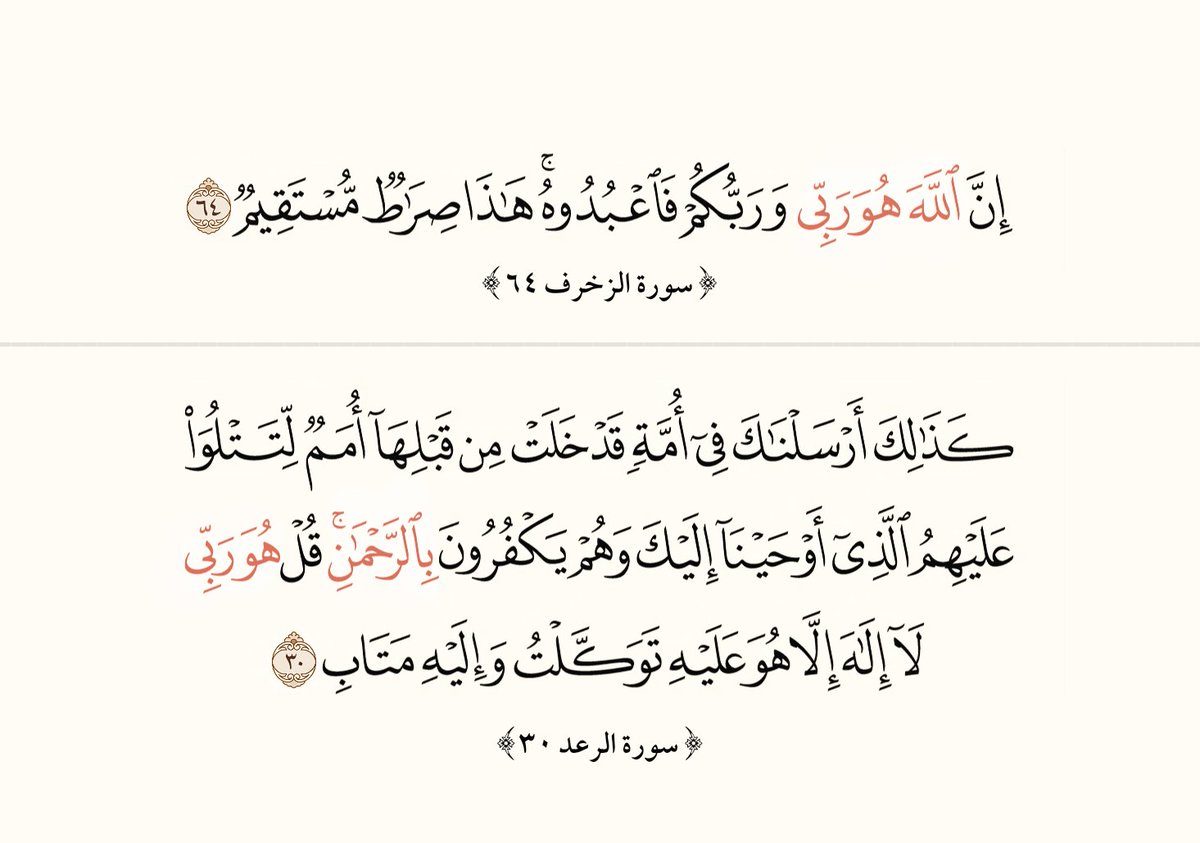 إِنَّ ٱللَّهَ هُوَ رَبِّى وَرَبُّكُمْ فَٱعْبُدُوهُ ۚ هَـٰذَا صِرَٰطٌ مُّسْتَقِيمٌ ٦٤
﴿ سورة الزخرف ٦٤ ﴾
كَذَٰلِكَ أَرْسَلْنَـٰكَ فِىٓ أُمَّةٍ قَدْ خَلَتْ مِن قَبْلِهَآ أُمَمٌ لِّتَتْلُوَا۟
عَلَيْهِمُ ٱلَّذِىٓ أَوْحَيْنَآ إِلَيْكَ وَهُمْ يَكْفُرُونَ بِٱلرَّحْمَـٰنِ ۚ قُلْ هُوَ رَبِّى
لَآ إِلَـٰهَ إِلَّا هُوَ عَلَيْهِ تَوَكَّلْتُ وَإِلَيْهِ مَتَابِ ٣٠
﴿ سورة الرعد ٣٠ ﴾